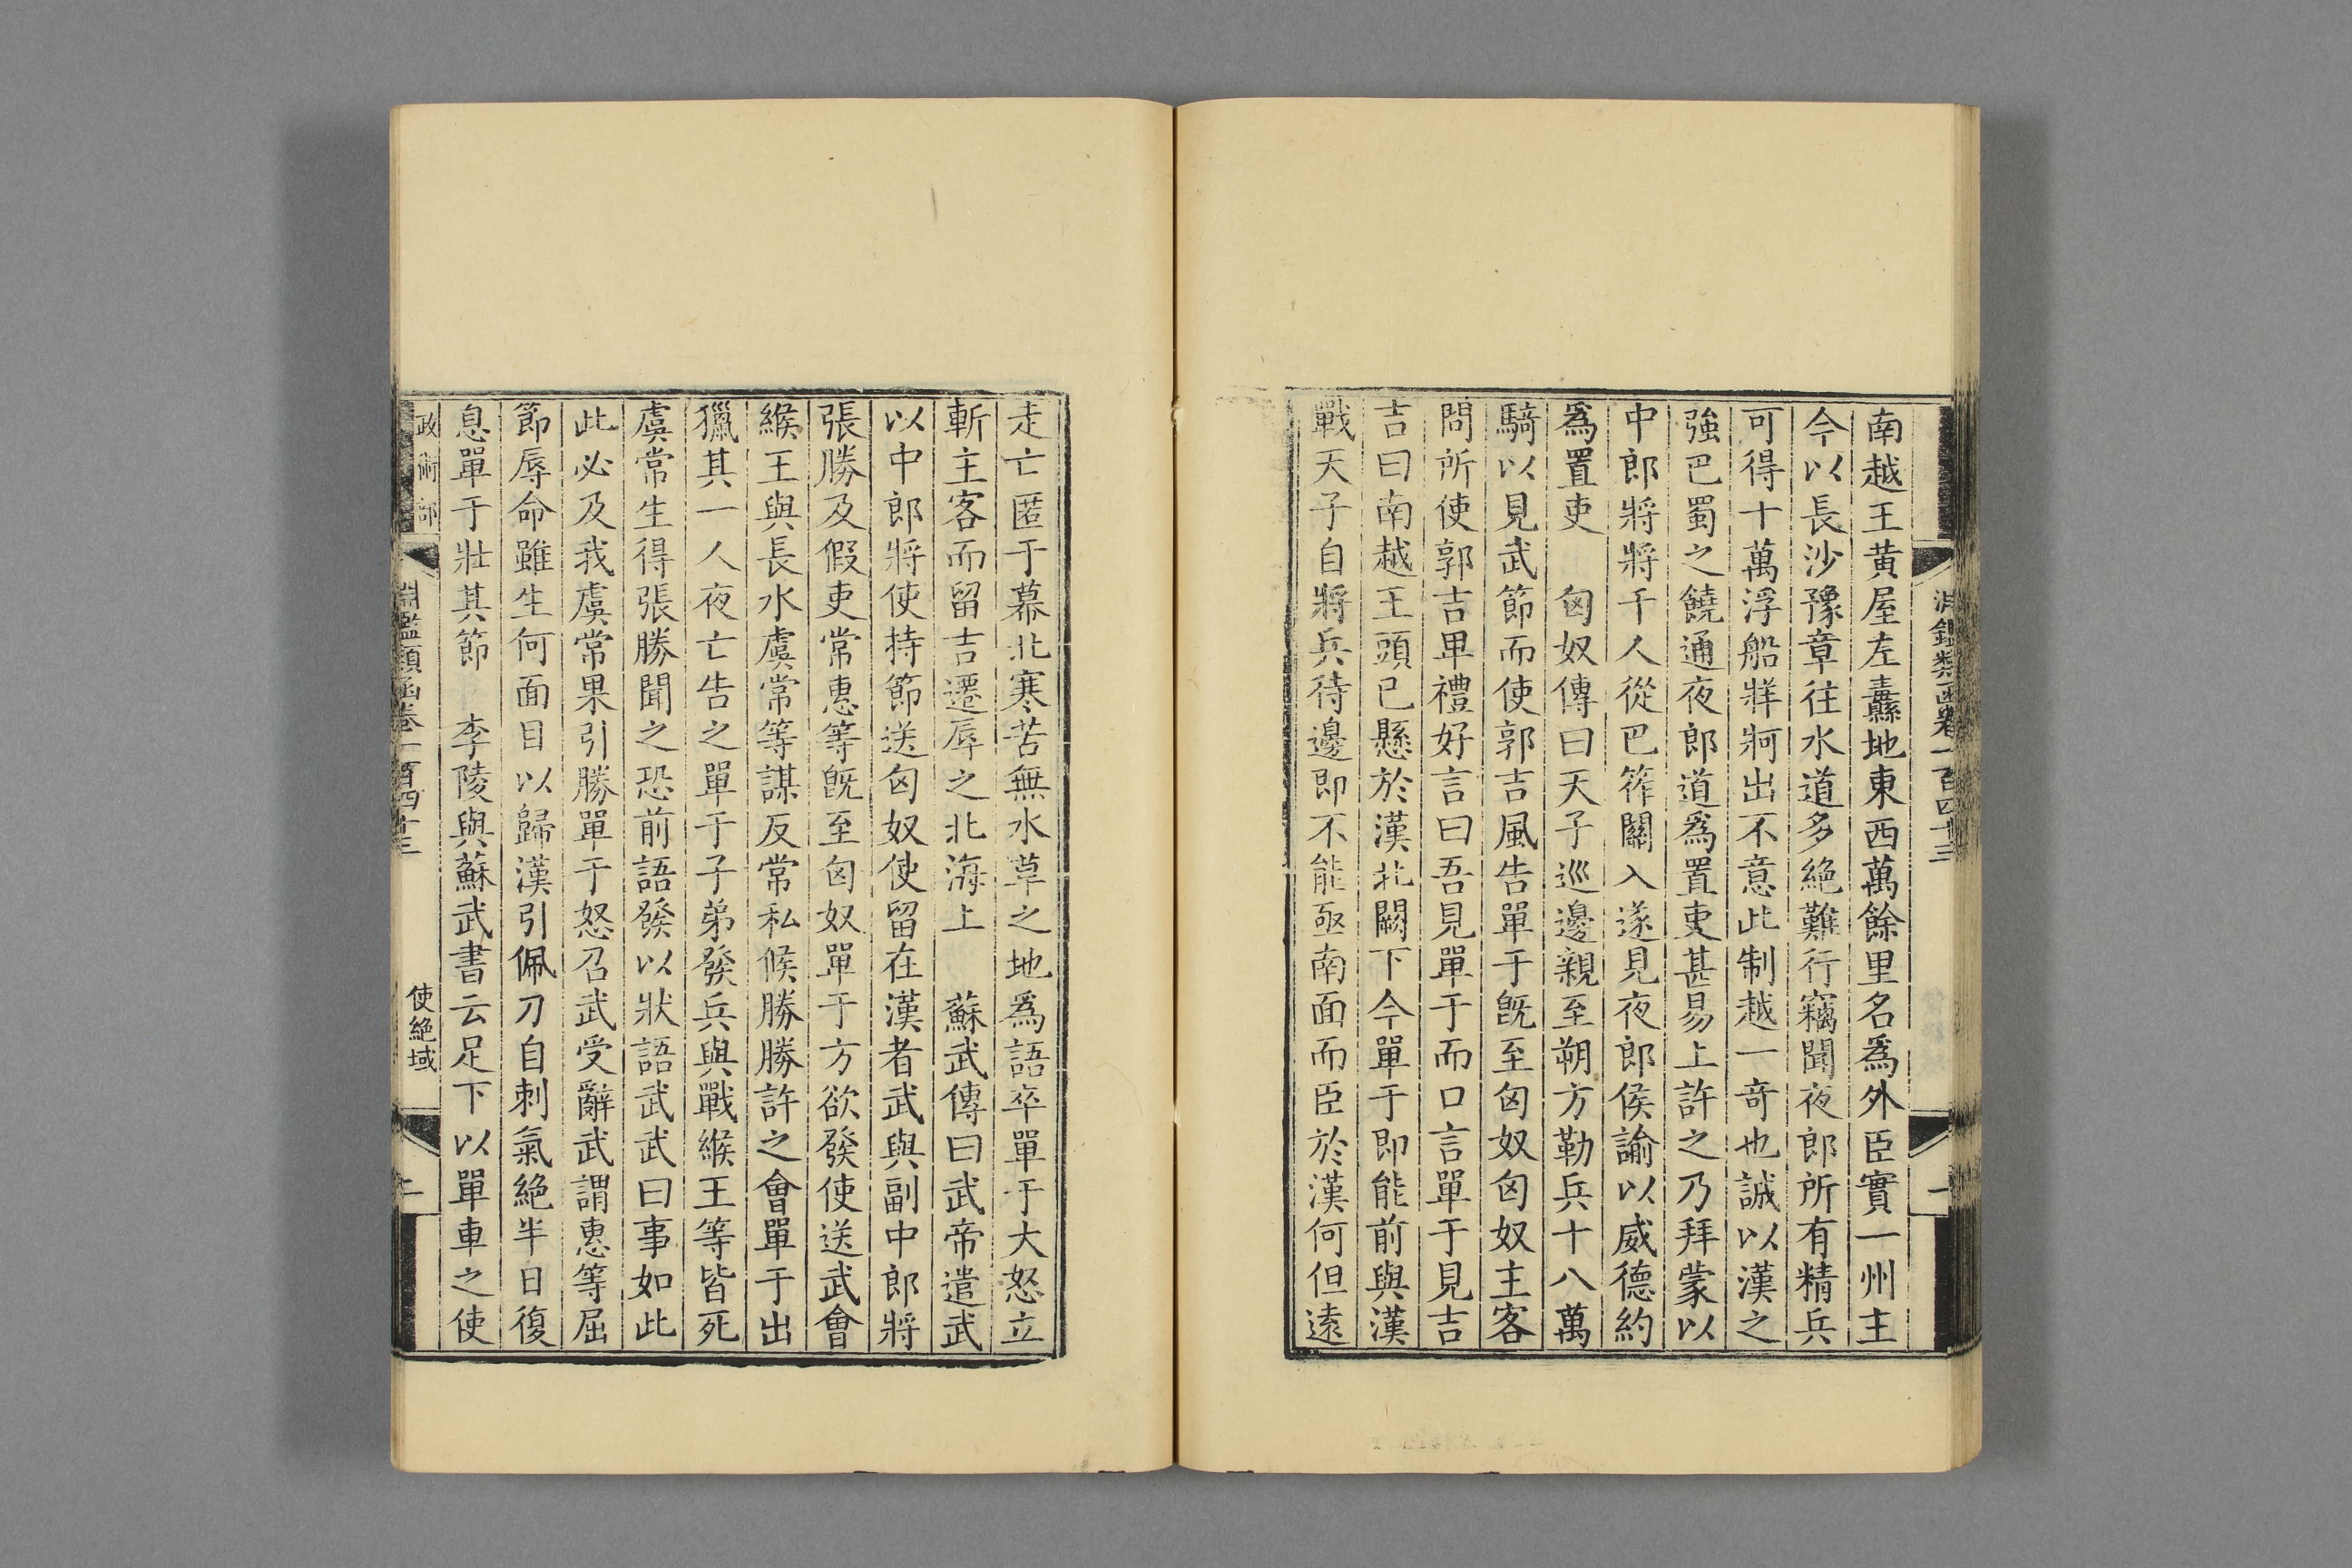 淵鑑類函卷一百四十三
一
南越王黃屋左纛地東西萬餘里名爲外臣實一州主
今以長沙豫章往水道多絶難行竊聞夜郎所有精兵
可得十萬浮船牂牁出不意此制越一竒也誠以漢之
強巴蜀之饒通夜郎道爲置吏甚易上許之乃拜蒙以
中郎將將千人從巴筰關入遂見夜郎侯諭以威德約
爲置吏　匈奴傳曰天子巡邊親至朔方勒兵十八萬
騎以見武節而使郭吉風告單于旣至匈奴匈奴主客
問所使郭吉卑禮好言曰吾見單于而口言單于見吉
吉曰南越王頭已懸於漢北闕下今單于即能前與漢
戰天子自將兵待邊即不能亟南面而臣於漢何但遠
走亡匿于幕北寒苦無水草之地爲語卒單于大怒立
斬主客而留吉遷辱之北海上　蘇武傳曰武帝遣武
以中郎將使持節送匈奴使留在漢者武與副中郎將
張勝及假吏常惠等旣至匈奴單于方欲發使送武會
緱王與長水虞常等謀反常私候勝勝許之會單于出
獵其一人夜亡告之單于子弟發兵與戰緱王等皆死
虞常生得張勝聞之恐前語發以狀語武武曰事如此
此必及我虞常果引勝單于怒召武受辭武謂惠等屈
節辱命雖生何面目以歸漢引佩刀自刺氣絶半日復
息單于壯其節　李陵與蘇武書云足下以單車之使
政術部
淵鑑類函卷一百四十三
使絶域
二